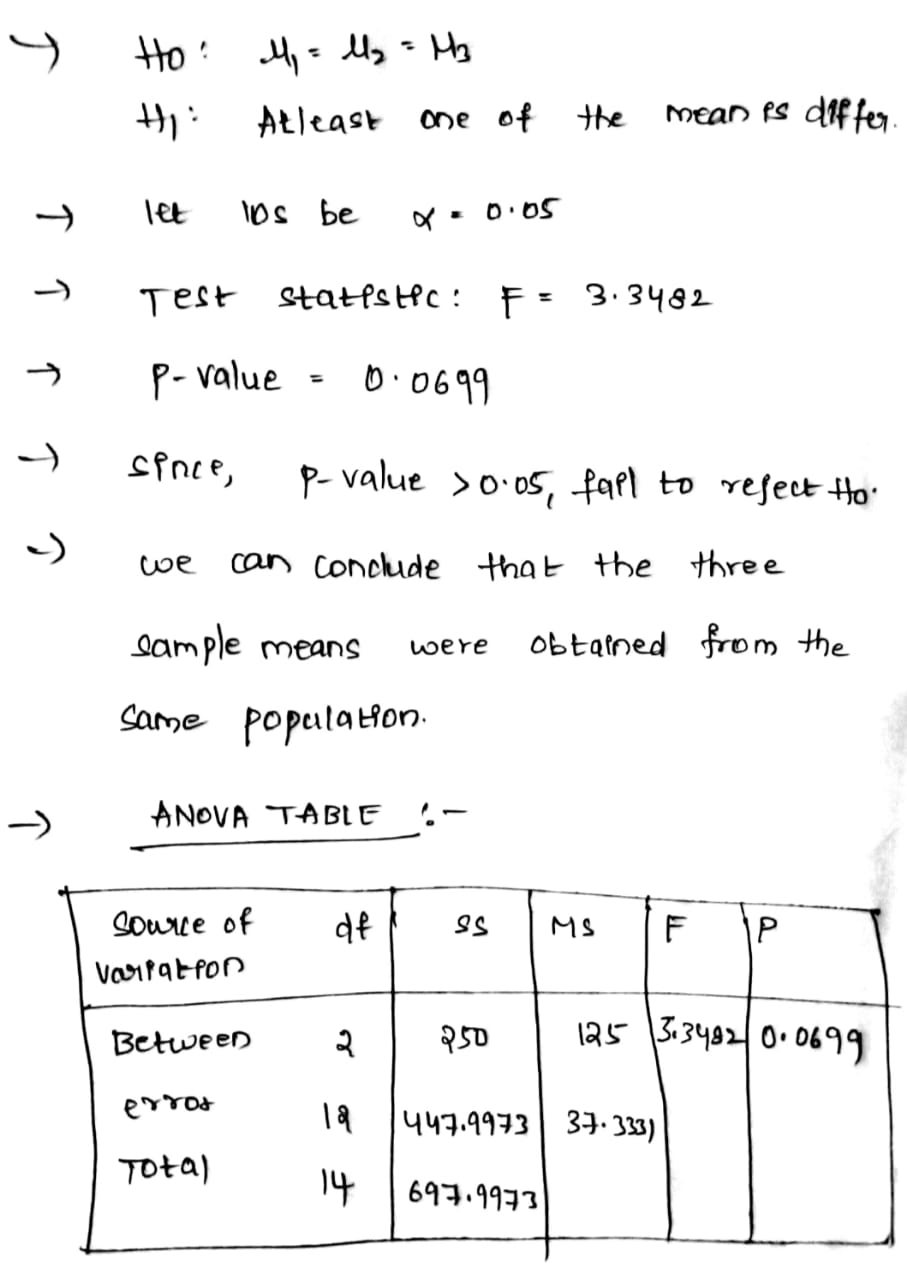 → H0 : μ1 = μ2 = μ3
H1 : Atleast one of the mean is differ.
→ let los be α = 0.05
→ Test statistic : F = 3.3482
→ P-value = 0.0699
→ since, P-value >0.05, fail to reject H0.
→ we can conclude that the three
sample means were obtained from the
same population.
→ ANOVA TABLE :-
Source of variation df SS MS F P
Between 2 250 125 3.3482 0.0699
error 12 447.9973 37.3331
Total 14 697.9973